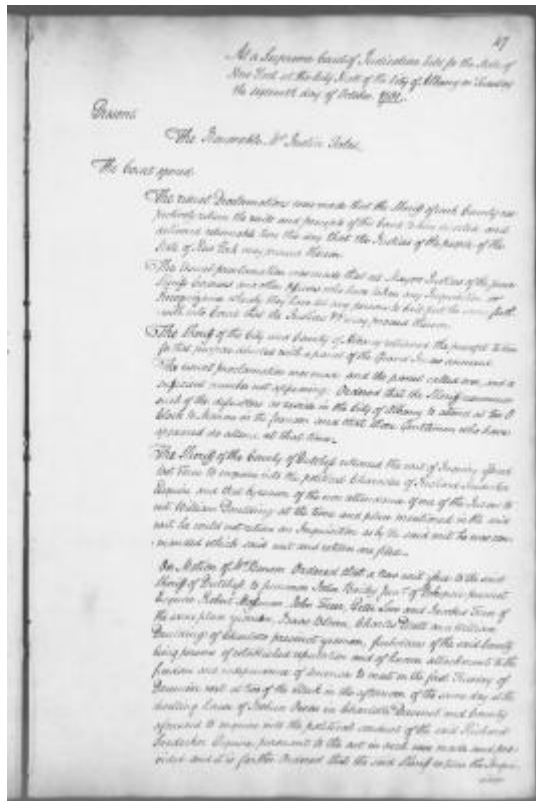 47
At a Supreme Court of Judicature held for the State of
New York at the City Hall of the City of Albany on Tuesday
the sixteenth day of October 1781.
Present
The Honorable Mr Justice Yates
The Court opened
The usual Proclamation was made that the Sheriff of each County res
pectively return the writs and precepts of this Court to him directed and
delivered returnable here this day that the Justices of the people of the
State of New York may proceed thereon
The usual proclamation was made that all Mayors Justices of the peace
Sheriffs Coroners and other officers who have taken any Inquisition or
Recognizance whereby they have let any persons to bail put the same forth
with into Court that the Justices may proceed thereon
The Sheriff of the City and County of Albany returned the precept to him
for that purpose directed with a panel of the Grand Jurors annexed
The usual proclamation was made and the panel called over, and a
sufficient number not appearing. Ordered that the Sheriff summon
such of the defaulters as reside in the City of Albany to attend at ten O
Clock to Morrow in the forenoon and that those Gentlemen who have
appeared do attend at that time
The Sheriff of the County of Dutchess returned the writ of Inquiry issued
last Term to enquire into the political Character of Richard
Esquire and that by reason of the non attendance of one of the Jurors to
wit William at the time and place mentioned in the said
writ he could not return an Inquisition as by the said writ he was com
manded which said writ and return are filed
On Motion of Mr Benson Ordered that a new writ issue to the said
Sheriff of Dutchess to summon John Bailey Junr of precinct
Esquire Robert Hoffman John Peter and Jacobus of
the same place yeomen, Isaac Charles Platt and William
of Charlotte precinct yeomen, freeholders of the said County
being persons of established reputation and of known attachment to the
freedom and independence of America to meet on the first Tuesday of
December next at two of the clock in the afternoon of the same day at the
dwelling house of in Charlotte Precinct and County
aforesaid to enquire into the political conduct of the said Richard
Esquire pursuant to the act in such case made and pro
vided and it is further Ordered that the said Sheriff return the Inqui